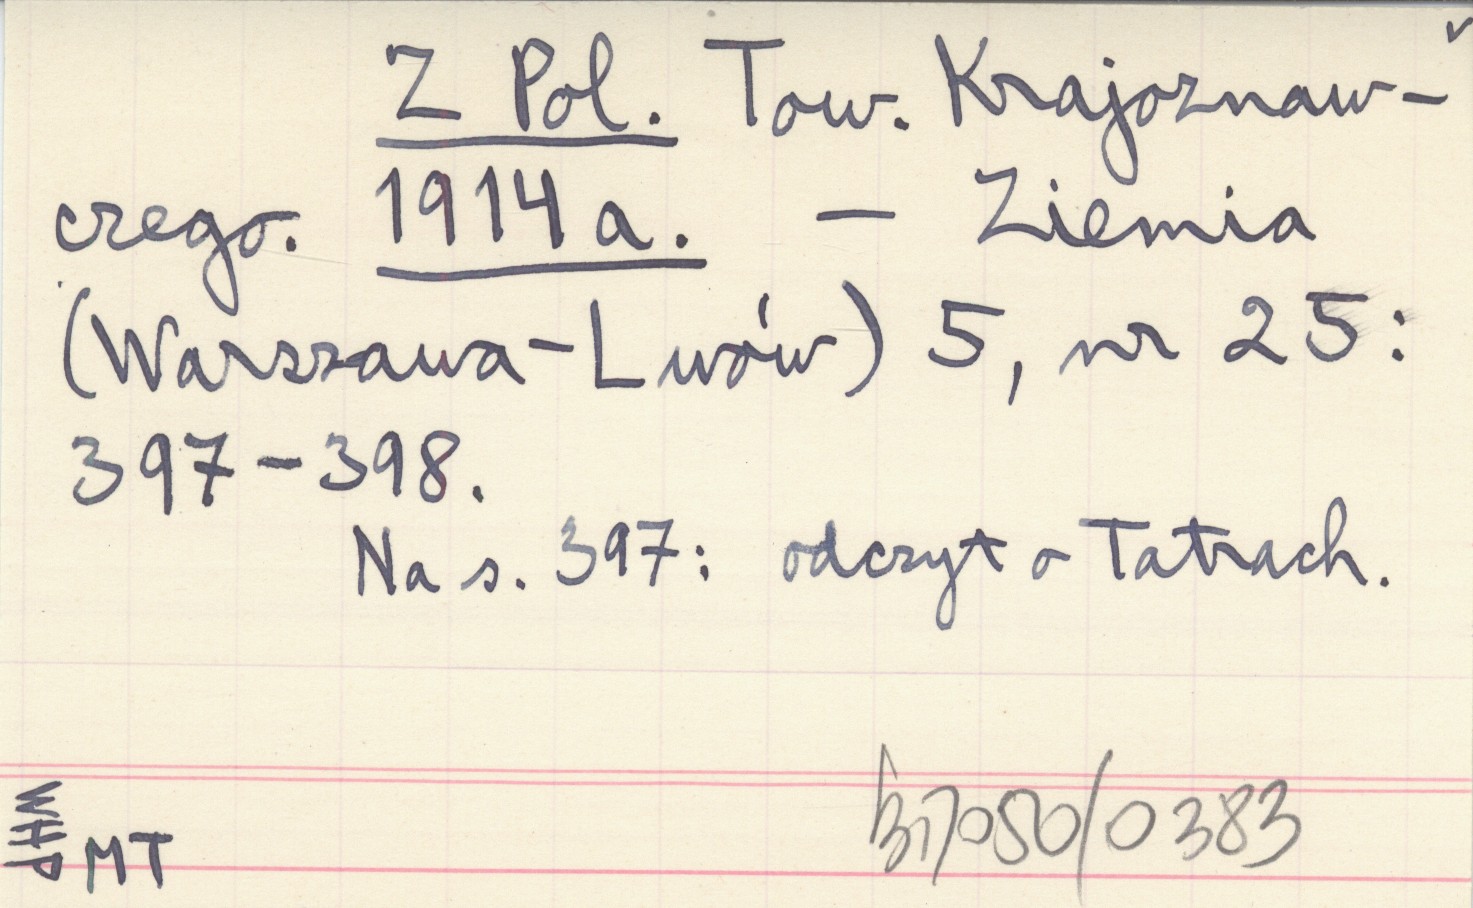 Z Pol. Tow. Krajoznaw-
czego. 1914 a. — Ziemia
(Warszawa-Lwów) 5, nr 25:
397-398.
Na s. 397: odczyt o Tatrach.
WHP
MT
/0383